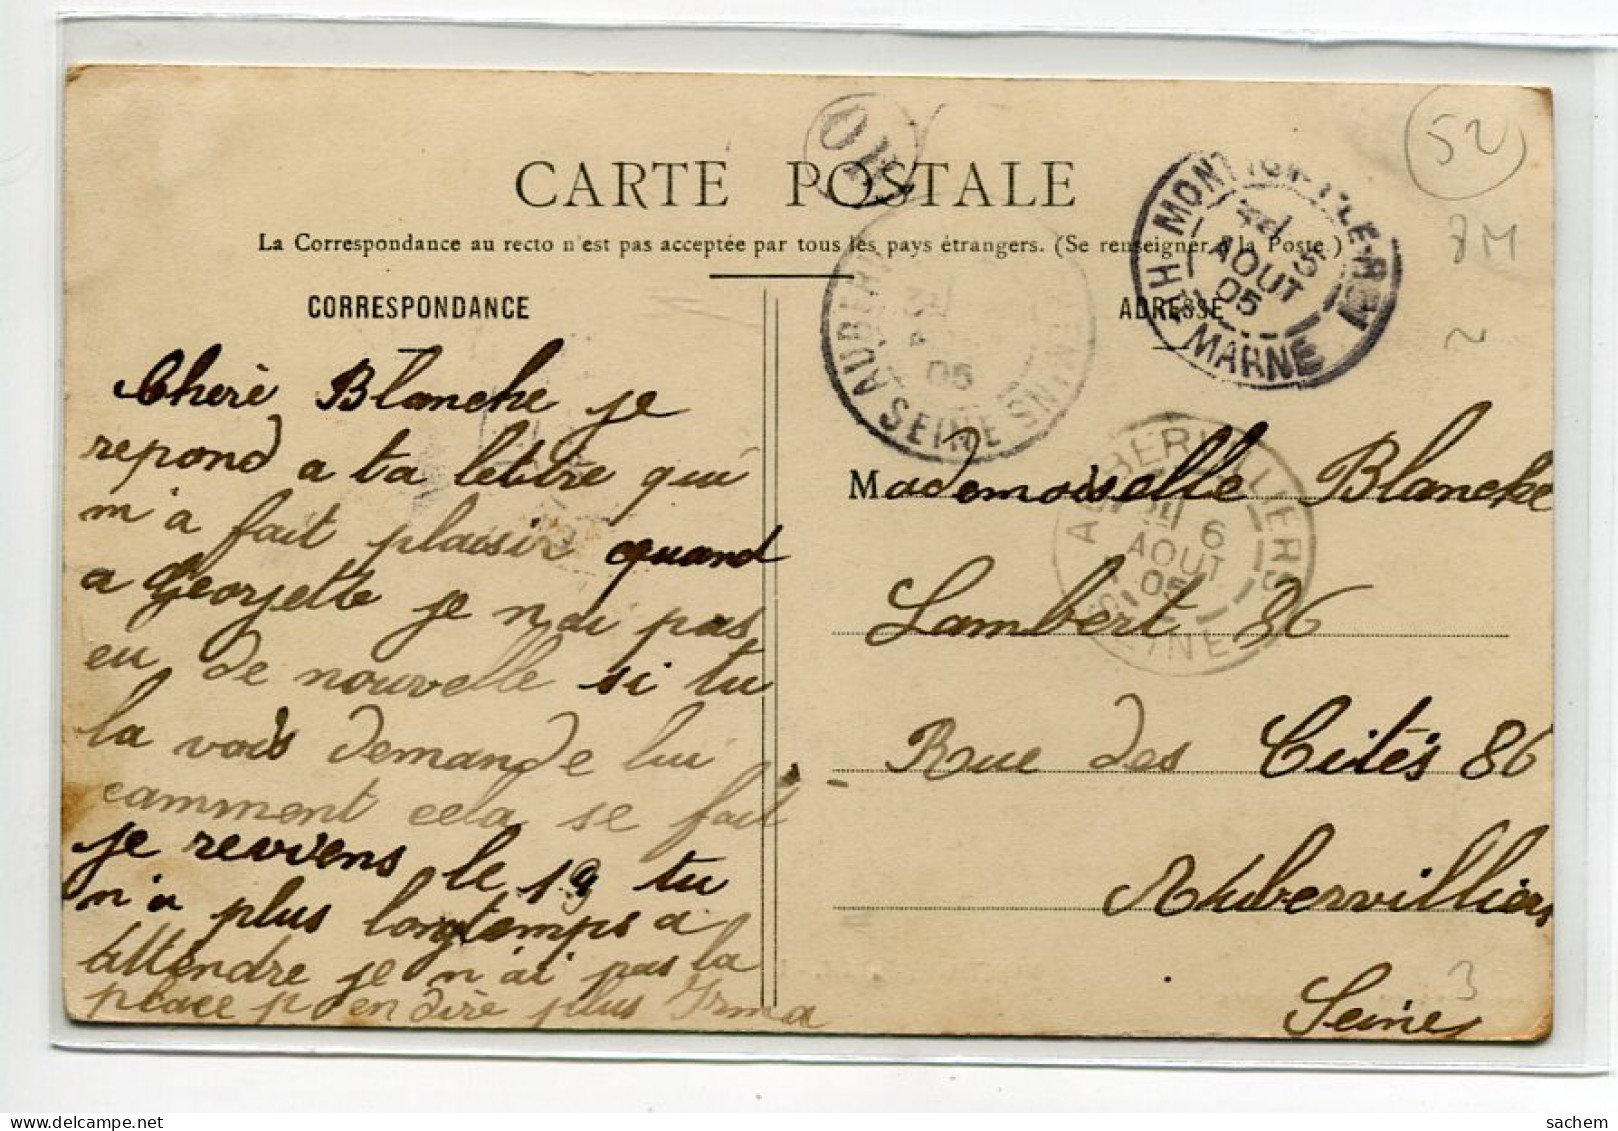 CARTE POSTALE
La Correspondance au recto n'est pas acceptée par tous les pays étrangers. (Se renseigner à la Poste.)
CORRESPONDANCE
Cherè Blanche je
repond a ta lettre qui
m'a fait plaisir quand
a Georjette je n'ai pas
eu de nouvelle si tu
la vois demande lui
camment cela se fait
je reviens le 19 tu
n'a plus longtemps a
attendre je n'ai pas la
place p en dire plus Irma
ADRESSE
Mademoiselle Blanche
Lambert 86
Rue des Cités 86
Aubervilliers
Seine
OR
MONTIGNY-LE-ROI
5
AOUT
05
HTE MARNE
AUBERV
05
SEINE
AUBERVILLIERS
6
AOUT
05
SEINE
52
3
sachem